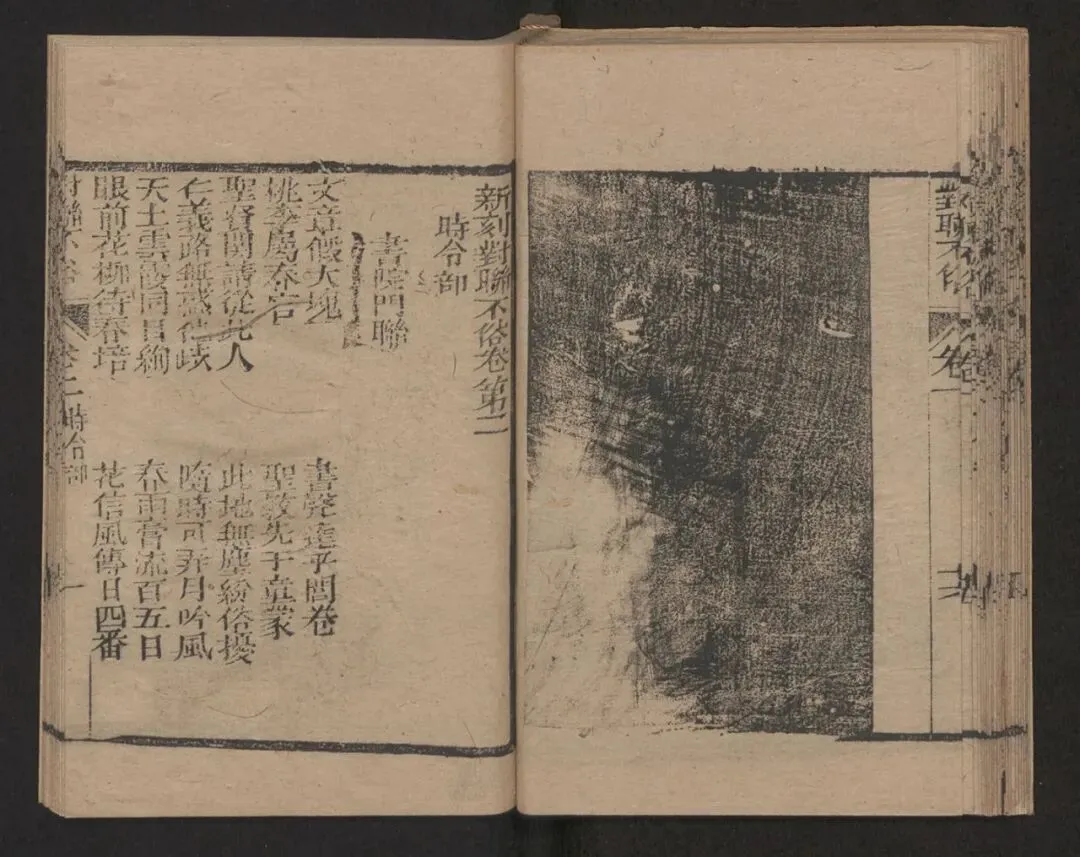 對聯不俗 卷一
新刻對聯不俗卷第二
時令部
書院門聯
文章假大塊 書聲達乎閭巷
桃李屬春官 聖教先于童蒙
聖賢關請從此入 此地無塵紛俗擾
仁義路無惑他歧 隨時可弄月吟風
天上雲霞同日絢 春雨膏流百五日
眼前花柳待春培 花信風傳廿四番
對聯不俗 卷二 時令部 一